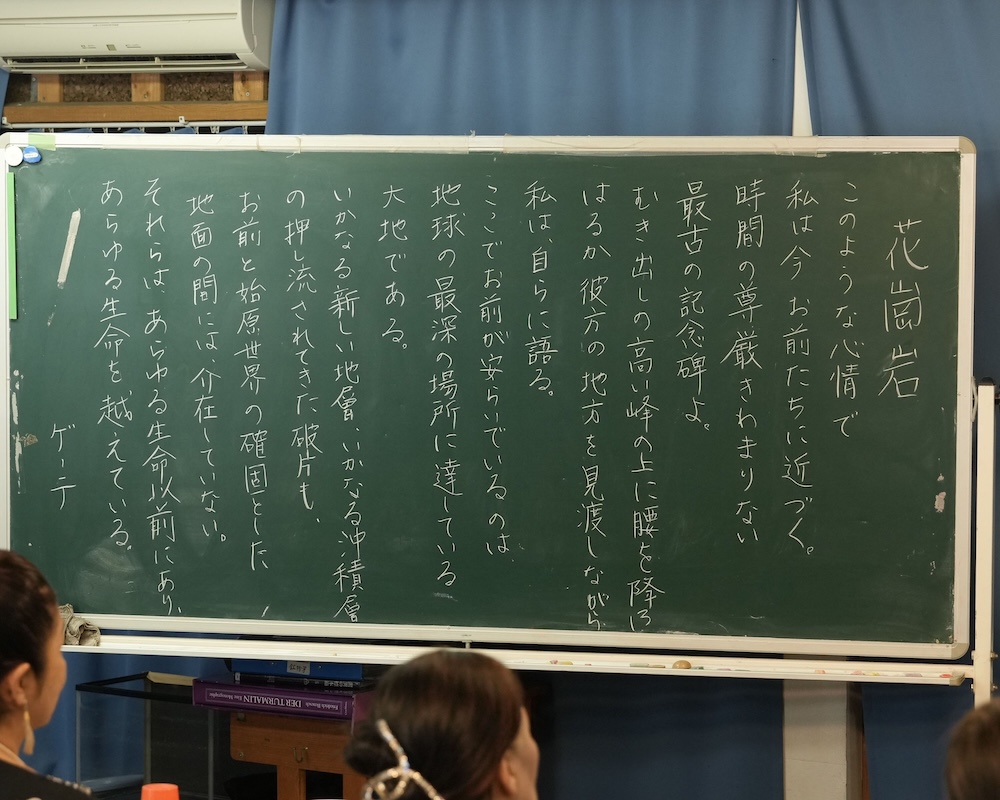 花崗岩
このような心情で
私は今 お前たちに近づく。
時間の尊厳きわまりない
最古の記念碑よ。
むき出しの高い峰の上に腰を降ろし
はるか彼方の地方を見渡しながら
私は、自らに語る。
ここでお前が安らいでいるのは、
地球の最深の場所に達している
大地である。
いかなる新しい地層、いかなる沖積層
の押し流されてきた破片も、
お前と始原世界の確固とした
地面の間には、介在していない。
それらは、あらゆる生命以前にあり、
あらゆる生命を越えている。
ゲーテ
DER TURMALIN